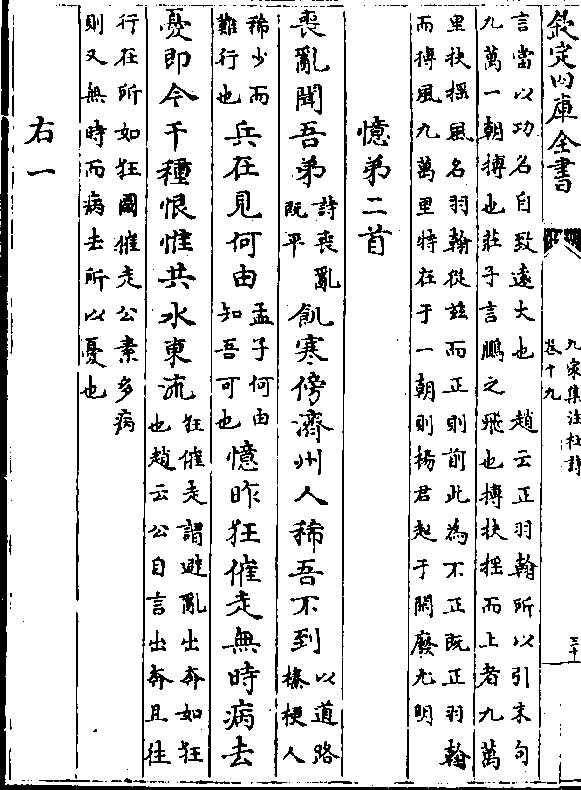 欽定四庫全書
九家集注杜詩
卷十九
三十
言當以功名自致遠大也　趙云正羽翰所以引末句
九萬一朝搏也莊子言鵬之飛也搏扶揺而上者九萬
里扶揺風名羽翰從兹而正則前此為不正既正羽翰
而搏風九萬里特在于一朝則楊君起于閑廢尤明
憶弟二首
喪亂聞吾弟
詩喪亂
既平
飢寒傍濟州人稀吾不到
以道路
榛梗人
稀少而
難行也
兵在見何由
孟子何由
知吾可也
憶昨狂催走無時病去
憂即今千種恨惟共水東流
狂催走謂避亂出奔如狂
也趙云公自言出奔且往
行在所如狂國催走公素多病
則又無時而病去所以憂也
右一